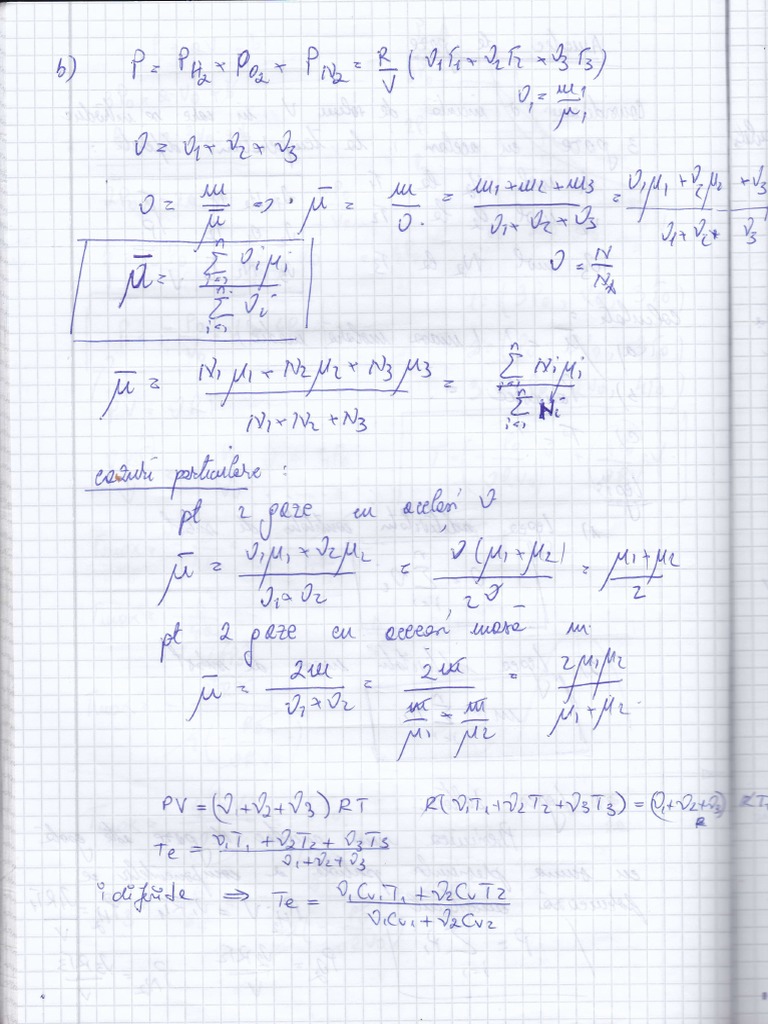 b) P = P_H₂ + P_O₂ + P_N₂ = R/V (ν₁T₁ + ν₂T₂ + ν₃T₃)
ν₁ = m₁/μ₁
ν = ν₁ + ν₂ + ν₃
ν = m/μ̄ => μ̄ = m/ν = (m₁+m₂+m₃)/(ν₁+ν₂+ν₃) = (ν₁μ₁ + ν₂μ₂ + ν₃)/(ν₁+ν₂+ν₃)
μ̄ = Σⁿᵢ₌₁ νᵢμᵢ / Σⁿᵢ₌₁ νᵢ
ν = N/N_A
μ̄ = (N₁μ₁ + N₂μ₂ + N₃μ₃)/(N₁+N₂+N₃) = Σⁿᵢ₌₁ Nᵢμᵢ / Σⁿᵢ₌₁ Nᵢ
cazuri particulare :
pt 2 gaze cu acelasi ν
μ̄ = (ν₁μ₁ + ν₂μ₂)/(ν₁+ν₂) = ν(μ₁+μ₂)/2ν = (μ₁+μ₂)/2
pt 2 gaze cu aceeasi masă m
μ̄ = 2m/(ν₁+ν₂) = 2m/(m/μ₁ + m/μ₂) = 2μ₁μ₂/(μ₁+μ₂)
PV = (ν₁+ν₂+ν₃) RT R(ν₁T₁+ν₂T₂+ν₃T₃) = (ν₁+ν₂+ν₃) RT
Te = (ν₁T₁ + ν₂T₂ + ν₃T₃)/(ν₁+ν₂+ν₃)
=> Te = (ν₁Cv₁T₁ + ν₂CvT₂)/(ν₁Cv₁ + ν₂Cv₂)